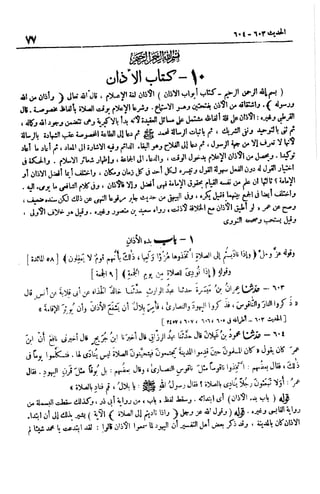 الحديث ٦٠٣ - ٦٠٤
٧٧
بسم الله الرحمن الرحيم
١٠ - كتاب الأذان
( بسم الله الرحمن الرحيم - كتاب أبواب الأذان ) الأذان لغة الإعلام ، قال الله تعالى ( وأذان من الله
ورسوله ) واشتقاقه من الأذن بفتحتين وهو الاستماع . وشرعا الإعلام بوقت الصلاة بألفاظ مخصوصة . قال
القرطبي وغيره : الأذان على قلة ألفاظه مشتمل على مسائل العقيدة لأنه بدأ بالأكبرية وهي تتضمن وجود الله وكماله ،
ثم ثنى بالتوحيد ونفى الشريك ، ثم بإثبات الرسالة لمحمد ﷺ ثم دعا إلى الطاعة المخصوصة عقب الشهادة بالرسالة
لأنها لا تعرف إلا من جهة الرسول ، ثم دعا إلى الفلاح وهو البقاء الدائم وفيه الإشارة إلى المعاد ، ثم أعاد ما أعاد
توكيدا . ويحصل من الأذان الإعلام بدخول الوقت ، والدعاء إلى الجماعة ، وإظهار شعائر الإسلام . والحكمة في
اختيار القول له دون الفعل سهولة القول وتيسره لكل أحد في كل زمان ومكان ، واختلف أيما أفضل الأذان أو
الإمامة ؟ ثالثها إن علم من نفسه القيام بحقوق الإمامة فهي أفضل وإلا فالأذان ، وفي كلام الشافعي ما يومئ إليه .
واختلف أيضا في الجمع بينهما فقيل يكره ، وفي البيهقي من حديث جابر مرفوعا النهي عن ذلك لكن سنده ضعيف ،
وصح عن عمر : لو أطيق الأذان مع الخلافة لأذنت ، رواه سعيد بن منصور وغيره . وقيل هو خلاف الأولى ،
وقيل يستحب وصححه النووي
١ - باب بدء الأذان
وقوله عز وجل ( وإذا ناديتم إلى الصلاة اتخذوها هزوا ولعبا ، ذلك بأنهم قوم لا يعقلون ) [ ٥٨ المائدة ]
وقوله ( إذا نودي للصلاة من يوم الجمعة ) [ ٩ الجمعة ]
٦٠٣ - حدثنا عمران بن ميسرة حدثنا عبد الوارث حدثنا خالد الحذاء عن أبي قلابة عن أنس قال
« ذكروا النار والناقوس ، فذكروا اليهود والنصارى ، فأمر بلال أن يشفع الأذان وأن يوتر الإقامة »
[ الحديث ٦٠٣ - أطرافه في : ٦٠٥ ، ٦٠٦ ، ٦٠٧ ، ٣٤٥٧ ]
٦٠٤ - حدثنا محمود بن غيلان قال حدثنا عبد الرزاق قال أخبرنا ابن جريج قال أخبرني نافع أن ابن
عمر كان يقول « كان المسلمون حين قدموا المدينة يجتمعون فيتحينون الصلاة ليس ينادى لها . فتكلموا يوما في
ذلك ، فقال بعضهم : اتخذوا ناقوسا مثل ناقوس النصارى ، وقال بعضهم : بل بوقا مثل قرن اليهود . فقال
عمر : أولا تبعثون رجلا ينادي بالصلاة ؟ فقال رسول الله ﷺ : يا بلال ، قم فناد بالصلاة »
قوله ( باب بدء الأذان ) أي ابتدائه . وسقط لفظ « باب » من رواية أبي ذر ، وكذلك سقطت البسملة من
رواية القابسي وغيره . قوله ( وقول الله عز وجل ( وإذا ناديتم إلى الصلاة ) الآية ) يشير بذلك إلى أن ابتداء
الأذان كان بالمدينة ، وقد ذكر بعض أهل التفسير أن اليهود لما سمعوا الأذان قالوا : لقد ابتدعت يا محمد شيئا لم